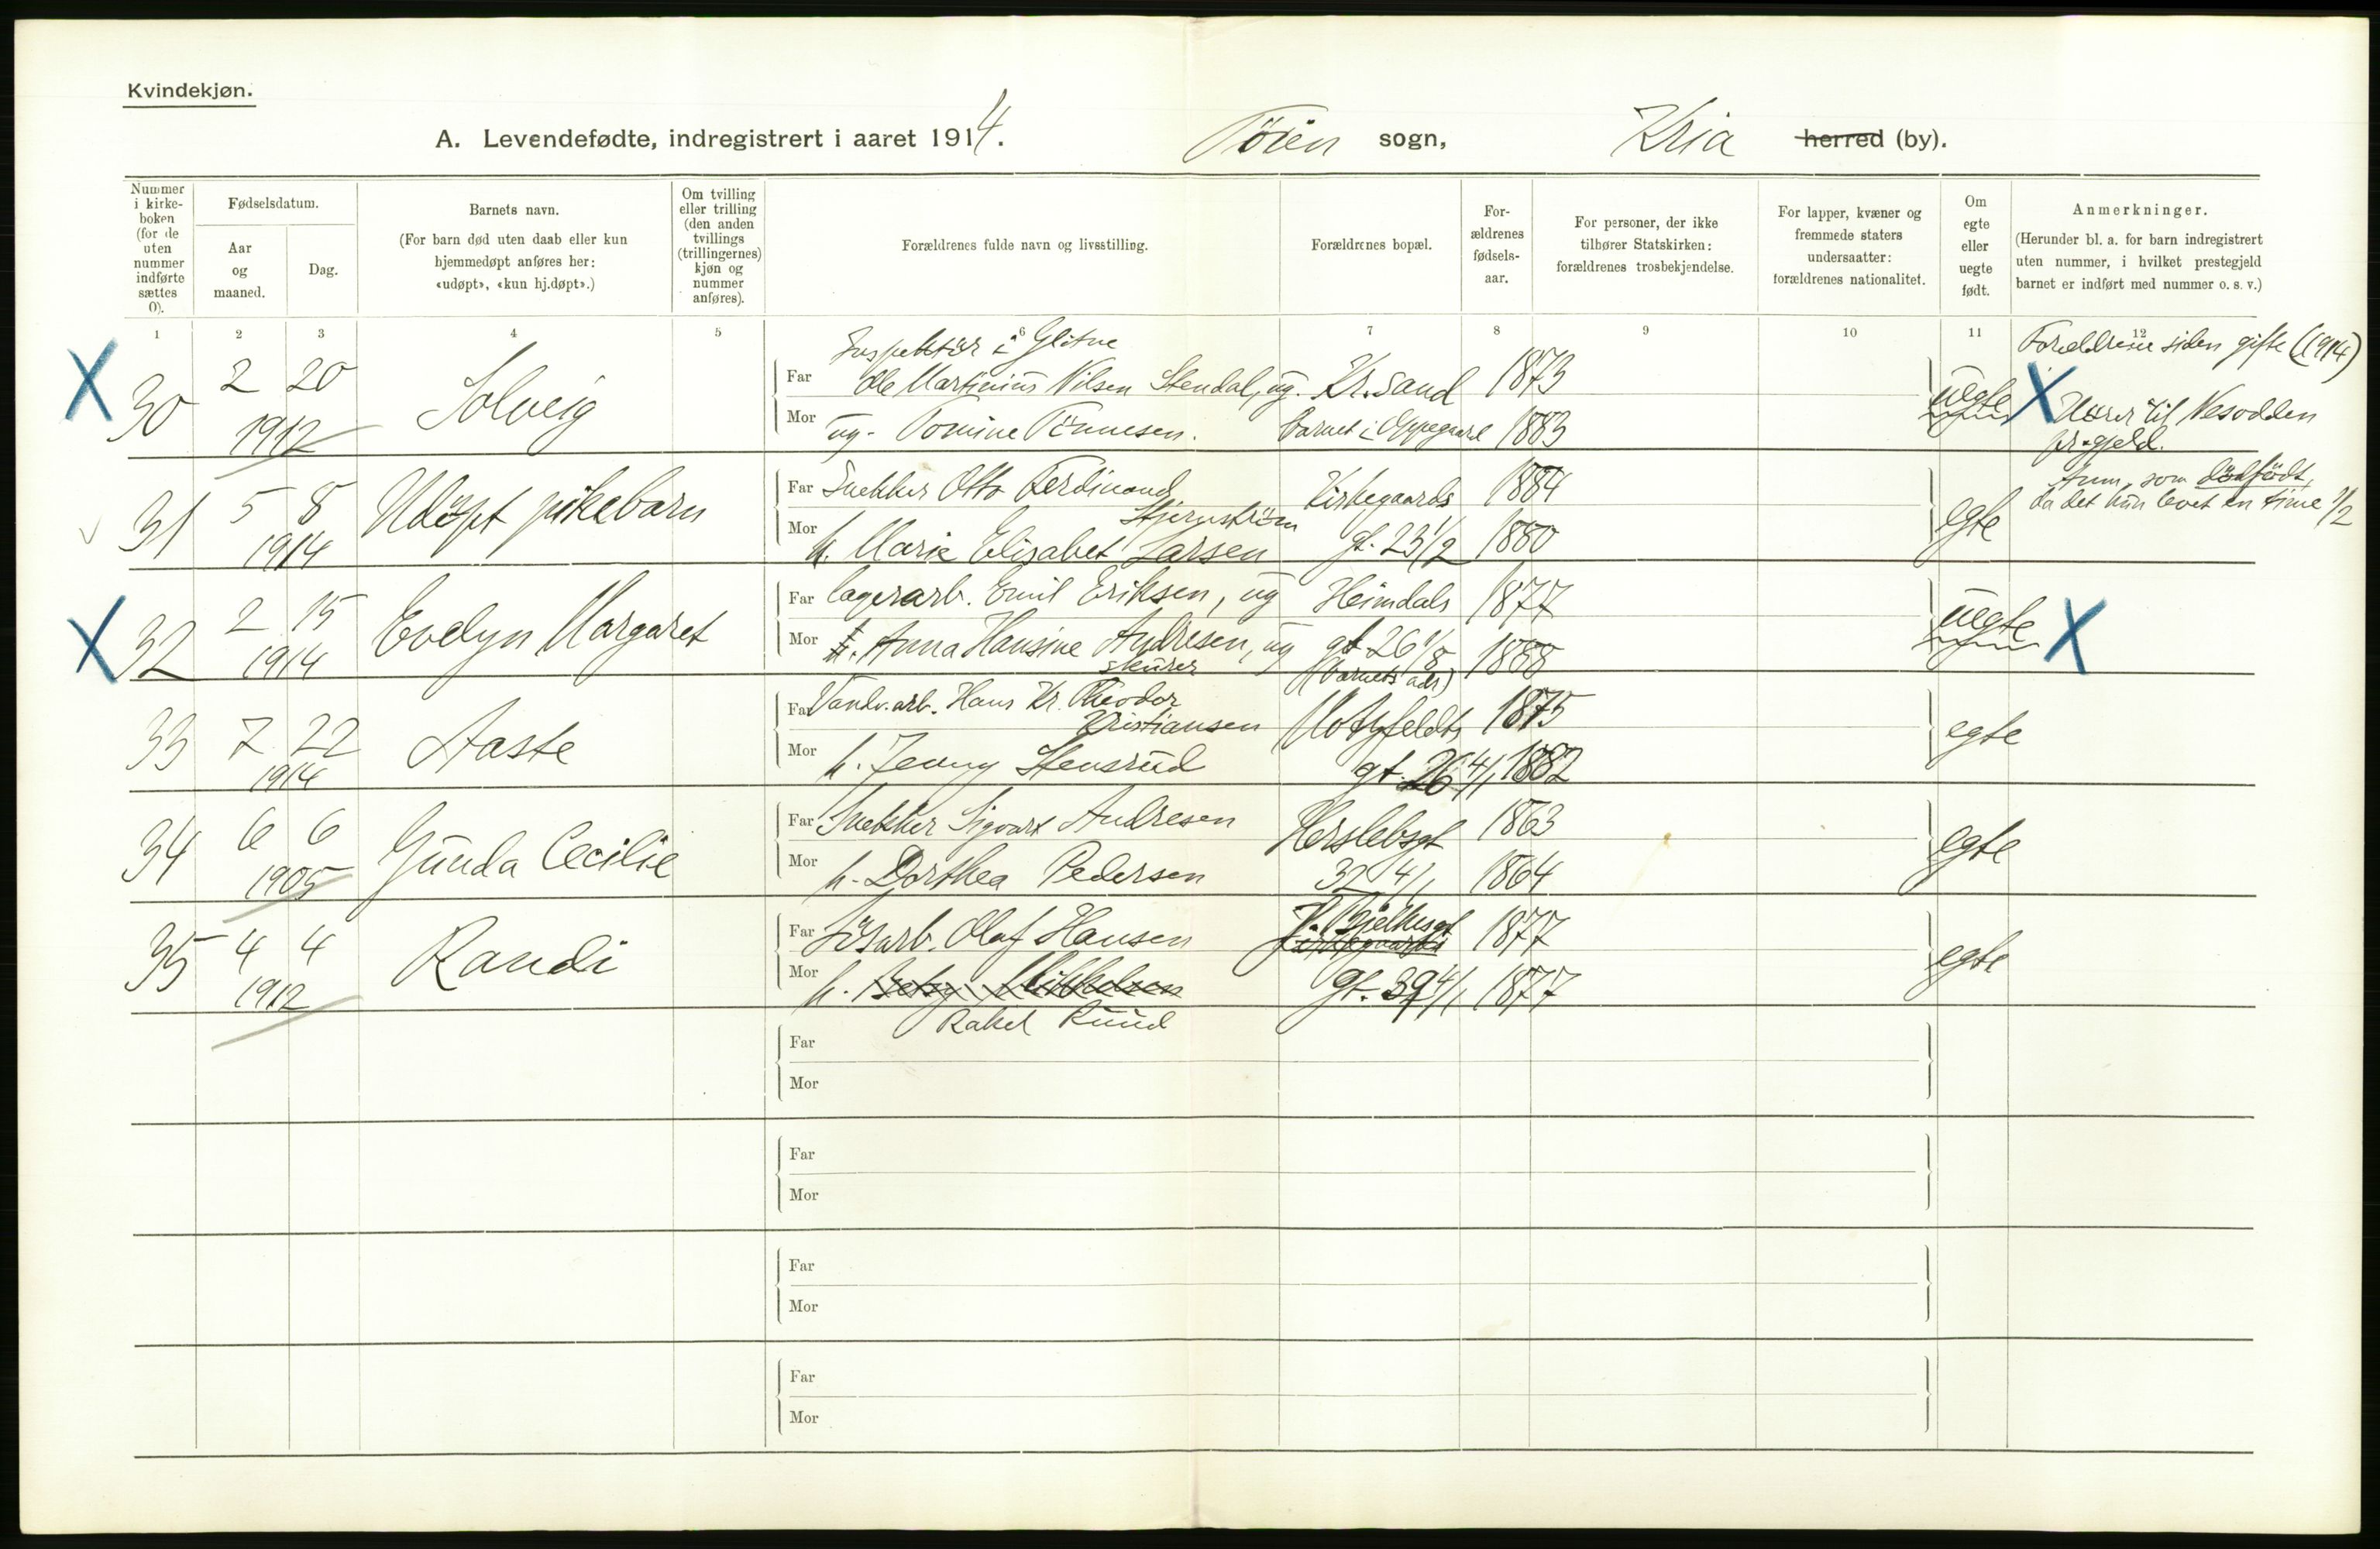 Kvindekjøn.
A. Levendefødte, indregistrert i aaret 1914. Töien sogn, Kria herred (by).
Nummer i kirkeboken (for de uten nummer indførte sættes 0).
Fødselsdatum.
Aar og maaned.
Dag.
Barnets navn.
(For barn død uten daab eller kun hjemmedøpt anføres her: «udøpt», «kun hj.døpt».)
Om tvilling eller trilling (den anden tvillings (trillingernes) kjøn og nummer anføres).
Forældrenes fulde navn og livsstilling.
Forældrenes bopæl.
Forældrenes fødselsaar.
For personer, der ikke tilhører Statskirken: forældrenes trosbekjendelse.
For lapper, kvæner og fremmede staters undersaatter: forældrenes nationalitet.
Om egte eller uegte født.
Anmerkninger.
(Herunder bl. a. for barn indregistrert uten nummer, i hvilket prestegjeld barnet er indført med nummer o. s. v.)
1 2 3 4 5 6 7 8 9 10 11 12
X 30 2 20 1912 Solveig
Inspektör i Glitne
Far Ole Martinius Nilsen Stendal, ug. Kr.sand 1873
Mor ug. Tomine Tönnesen. barnet i Oppegaard 1883
uegte X
Forældrene siden gifte (1914)
Hører til Nesodden
pr.gjeld.
31 5 8 1914 Udöpt pikebarn
Far Snekker Otto Ferdinand Stjernström Kirkegaards 1884
Mor h. Marie Elisabet Larsen gt. 23 1/2 1880
egte
Anm. som dödfödt,
da det kun levet en time 1/2
X 32 2 15 1914 Evelyn Margaret
Far lagerarb. Emil Eriksen, ug Heimdals 1877
Mor h. Anna Hansine Andresen, ug gt 26 1/8 1888
skurer (barnets adr)
uegte X
33 7 22 1914 Aaste
Far Vandv.arb. Hans Kr. Theodor Kristiansen Motzfeldts 1875
Mor h. Jenny Stensrud gt. 26 4/1 1882
egte
34 6 6 1905 Gunda Cecilie
Far Snekker Sigvart Andresen Herslebsgt 1863
Mor h. Dorthea Pedersen 32 4/1 1864
egte
35 4 4 1912 Randi
Far Lösarb. Olaf Hansen J. Bjelkesgt Kirkegaards 1877
Mor h. Betzy Mikkelsen gt. 39 4/1 1877
Rakel Ruud
egte
Far
Mor
Far
Mor
Far
Mor
Far
Mor